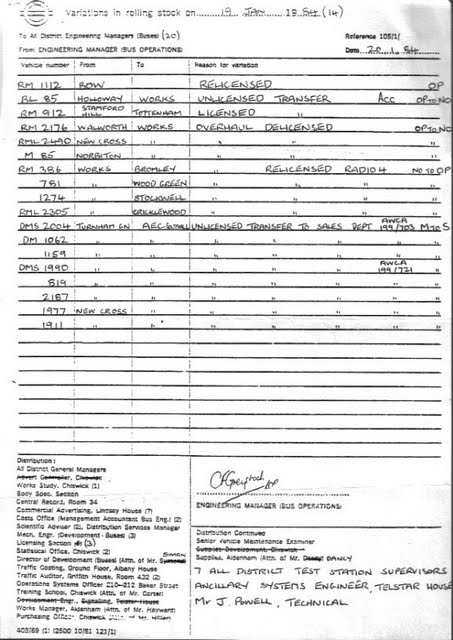 Variations in rolling stock on 19 JAN 19 84 (14)
To All District Engineering Managers (Buses) (20) Reference 108/1/
From ENGINEERING MANAGER (BUS OPERATIONS) Date 20.1.84
Vehicle number From To Reason for variation
RM 1112 BOW RELICENSED OP
BL 85 HOLLOWAY WORKS UNLICENSED TRANSFER ACC OP TO NO
RM 912 STAMFORD HILL TOTTENHAM LICENSED "
RM 2176 WALWORTH WORKS OVERHAUL DELICENSED OP TO NO
RML 2490 NEW CROSS " " " "
M 85 NORBITON " " " "
RM 386 WORKS BROMLEY " RELICENSED RADIO 4 NO TO OP
781 " WOOD GREEN " " " " "
1274 " STOCKWELL " " " " "
RML 2305 " CRICKLEWOOD " " " " "
DMS 2004 TURNHAM GN AEC SOUTHALL UNLICENSED TRANSFER TO SALES DEPT AWCA 199/703 M TO S
DM 1062 " " " " " " " "
1159 " " " " " " " "
DMS 1990 " " " " " " AWCA 199/721 "
819 " " " " " " " "
2187 " " " " " " " "
1977 NEW CROSS " " " " " " "
1911 " " " " " " " "
Distribution:
All District General Managers
Advert Controller, Chiswick
Works Study, Chiswick (1)
Body Spec. Section
Central Record, Room 34
Commercial Advertising, Lindsey House (7)
Costs Office (Management Accountant Bus Eng.) (2)
Scientific Adviser (2), Distribution Services Manager
Mech. Engr. (Development - Buses) (3)
Licensing Section (3)
Statistical Office, Chiswick (2)
Director of Development (Buses) (Attn. of Mr. SIMON
Traffic Costing, Ground Floor, Albany House
Traffic Auditor, Griffith House, Room 432 (2)
Operations Systems Officer 210-212 Baker Street
Training School, Chiswick (Attn. of Mr. Carter)
Development Engr., Signalling, Telstar House
Works Manager, Aldenham (Attn. of Mr. Hayward)
Purchasing Officer
403/69 (1) (2500 10/81 123/1)
ENGINEERING MANAGER (BUS OPERATIONS)
Distribution Continued
Senior Vehicle Maintenance Examiner
Supplies Development, Chiswick
Supplies, Aldenham (Attn. of Mr. DANCY
7 ALL DISTRICT TEST STATION SUPERVISORS
ANCILLARY SYSTEMS ENGINEER, TELSTAR HOUSE
Mr J. POWELL, TECHNICAL